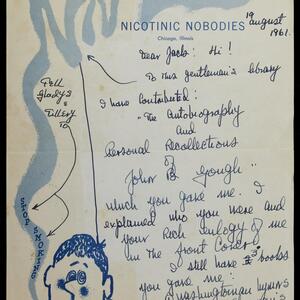 NICOTINIC NOBODIES
Chicago, Illinois
19 August
1961
Dear Jack: Hi!
To this gentleman's library
I have contributed:
"The Autobiography
and
Personal Recollections
of
John B. Gough"
which you gave me. I
explained who you were and
your Rich eulogy of me
in the front Cover.
I still have 3 books
you gave me:
Washingtonian Hymns
Tell
Gladys
&
STOP SMOKING